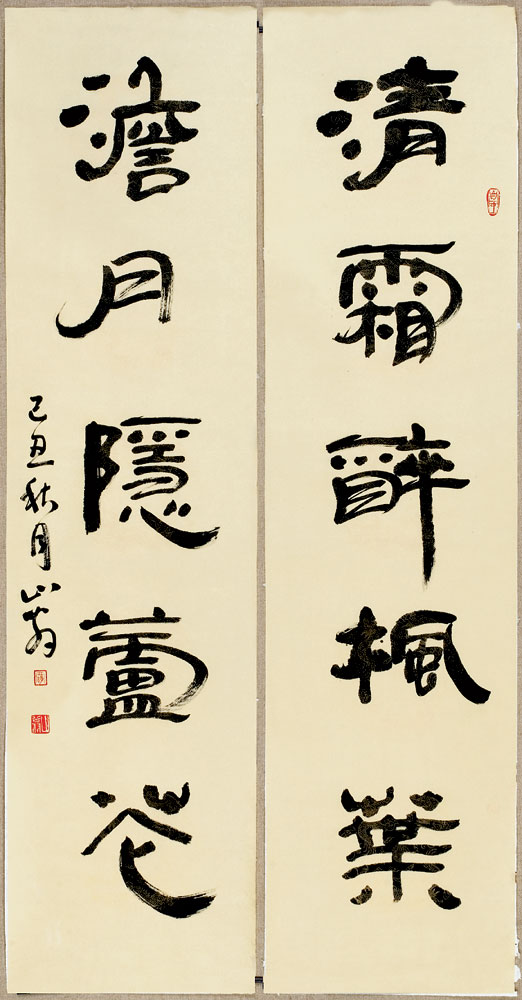 清霜醉楓葉
澹月隱蘆花
己丑秋月山翁